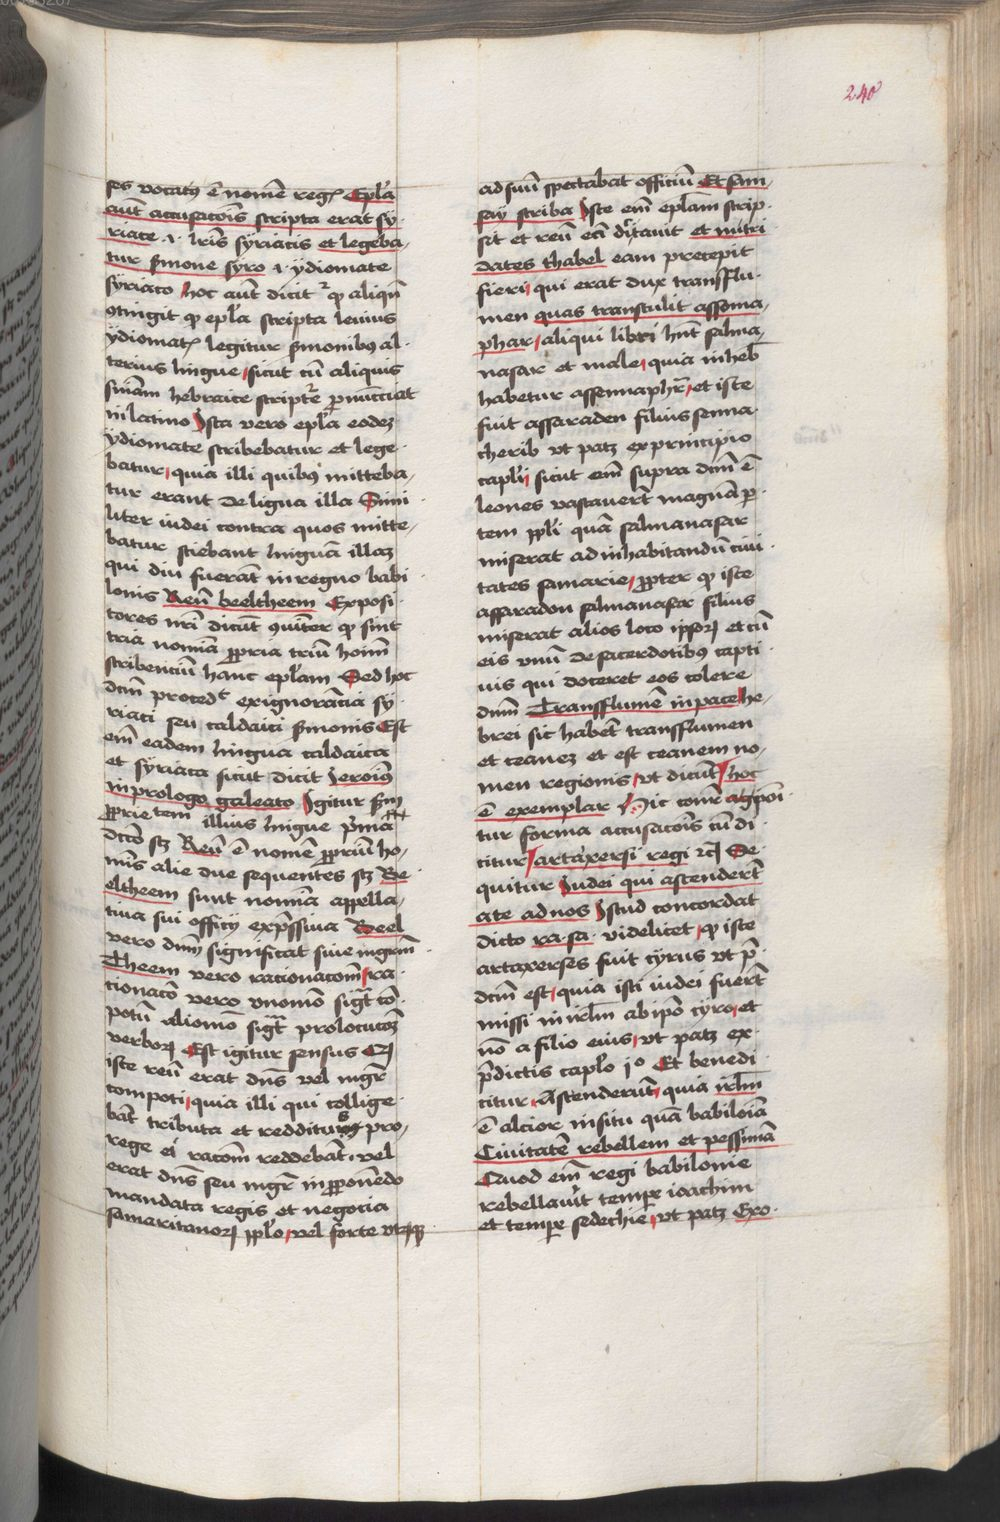 240
ses vocatus ē nomē regꝭ Epl̄a
aut̄ accusacōis scripta erat sy
riace .i. lr̄is syriacis et legeba
tur s̄mone syro .i. ydiomate
syriaco hoc aut̄ dicit̄ ꝙ aliqn̄
ꝯtingit ꝙ epl̄a scripta leuius
ydiomatꝭ legitur s̄monibꝰ al
terius lingue, sicut cū aliquis
hebraice scripte ꝓnūcciat
in latino Ista vero epl̄a eodeꝫ
ydiomate scribebatur et lege
batur, quia illi quibꝰ mitteba
tur erant de ligua illa Simi
liter iudei contra quos mitte
batur sciebant linguā illaꝫ
qui diu fuerāt in regno babi
lonis Reū beeltheem Exposi
tores nr̄i dicūt ꝯiūter ꝙ sint
tria nomīa ꝓpria triū hoīm
scribenciū hanc epl̄am Sed hoc
dcm̄ procedᵗ ex ignorācia sy
riaci seu caldaici s̄monis Est
em̄ eadem lingua caldaica
et syriaca sicut dicit Jeroīꝰ
in prologo galeato Igitur s̄m
ꝓprietem illius lingue p̄ma
dccō scꝫ Reū ē nomē ꝓpriū ho
mīs alie due sequentes scꝫ Be
eltheem sunt nomīa appella
tiua sui officij exp̄ssiua Beel
vero dnm̄ significat siue mgrm̄
Theem vero racionacom̄, ra
cionacō vero vnomō sigt̄ cō
potū aliomō sigt̄ prolocucoꝫ
verboꝝ Est igitur sensus Qꝫ
iste reū erat dn̄s vel mgr̄
compoti, quia illi qui collige
bāt tributa et redditus pro
rege ei racōm reddebāt. vel
erat dn̄s seu mgr̄ in ꝓponēdo
mandata regis et negocia
samaritanoꝝ ppl̄o, vel forte vtꝝqꝫ
ad suū spectabat officiū Et sam
say scriba Iste em̄ epl̄am scrip
sit et reū eā dictauit et mitri
dates thabel eam precepit
fieri, qui erat dux transflu
men quas transtulit assena
phar, aliqui libri hn̄t salma
nasar et male, quia in heb̄
habetur assennaphr̄, et iste
fuit assaraden filius senna
cherib vt patꝫ ex principio
capl̄i, sicut em̄ supra dcm̄ ē
leones vastauerūt magnā ꝑ
tem ppl̄i quā salmanasar
miserat ad inhabitandū ciui
tates samarie, ꝓpter ꝙ iste
assaradon salmanasar filius
miserat alios loco ipsoꝝ et cū
eis vnū de sacerdotibꝰ capti
uis qui doceret eos colere
dnm̄ Transflumē in pace he
brei sic habēt transflumen
et ceaneꝫ et est ceanem no
men regionis, vt dicūt, hoc
ē exemplar Hic conr̄ agpōi
tur forma accusacōis cū di
citur, artaxersi regi ⁊cꝫ Se
quitur Iudei qui ascenderūt
a te ad nos Istud concordat
dicto ra. sa. videlicet, ꝙ iste
artaxerses fuit cyrus vt p̄
dcm̄ est, quia isti iudei fuerūt
missi in irl̄m ab ipō cyro, et
nō a filio eius, vt patꝫ ex
p̄dictis caplo jº Et benedi
citur, Ascenderūt, quia irl̄m
ē alcior in situ quā babilōia
Ciuitatē rebellem et pessimā
Quod em̄ regi babilonie
rebellauit tempe ioachim
et tempe sedechie, vt patꝫ Exo